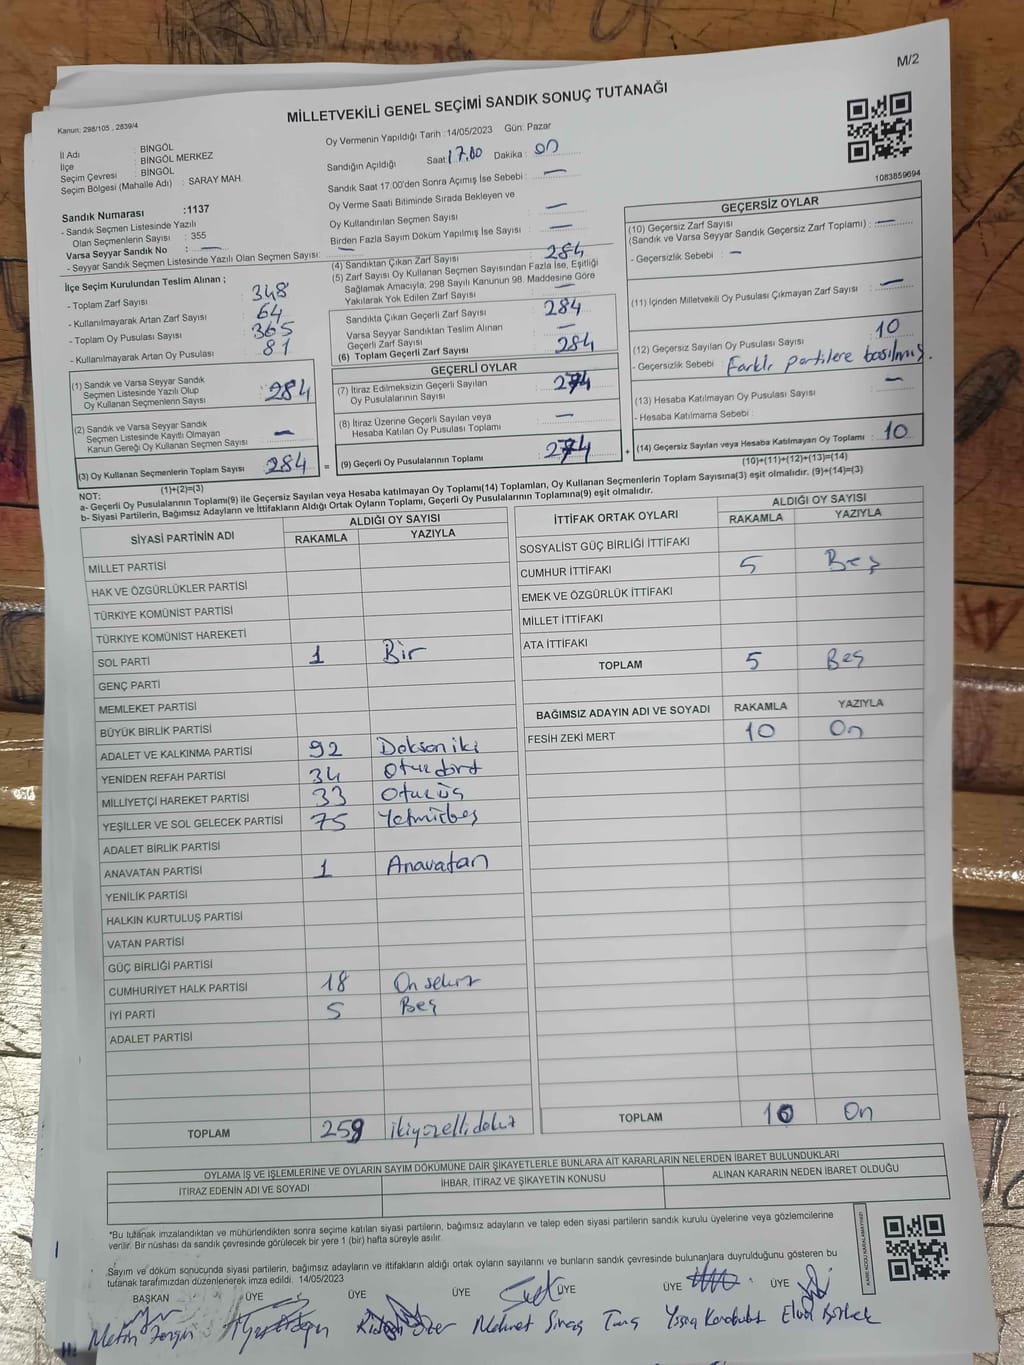 M/2
MİLLETVEKİLİ GENEL SEÇİMİ SANDIK SONUÇ TUTANAĞI
Kanun; 298/105 , 2839/4
İl Adı : BİNGÖL
İlçe : BİNGÖL MERKEZ
Seçim Çevresi : BİNGÖL
Seçim Bölgesi (Mahalle Adı) : SARAY MAH.
Oy Vermenin Yapıldığı Tarih :14/05/2023 Gün: Pazar
Sandığın Açıldığı Saat: 17.00 Dakika : on
Sandık Saat 17.00'den Sonra Açımış İse Sebebi : —
Oy Verme Saati Bitiminde Sırada Bekleyen ve
Oy Kullandırılan Seçmen Sayısı : —
Birden Fazla Sayım Döküm Yapılmış İse Sayısı : —
1083859694
Sandık Numarası :1137
- Sandık Seçmen Listesinde Yazılı
Olan Seçmenlerin Sayısı : 355
Varsa Seyyar Sandık No : —
- Seyyar Sandık Seçmen Listesinde Yazılı Olan Seçmen Sayısı: —
İlçe Seçim Kurulundan Teslim Alınan ;
- Toplam Zarf Sayısı : 348
- Kullanılmayarak Artan Zarf Sayısı : 64
- Toplam Oy Pusulası Sayısı : 365
- Kullanılmayarak Artan Oy Pusulası : 81
(1) Sandık ve Varsa Seyyar Sandık
Seçmen Listesinde Yazılı Olup
Oy Kullanan Seçmenlerin Sayısı : 284
(2) Sandık ve Varsa Seyyar Sandık
Seçmen Listesinde Kayıtlı Olmayan
Kanun Gereği Oy Kullanan Seçmen Sayısı : —
(3) Oy Kullanan Seçmenlerin Toplam Sayısı : 284
(1)+(2)=(3)
(4) Sandıktan Çıkan Zarf Sayısı : 284
(5) Zarf Sayısı Oy Kullanan Seçmen Sayısından Fazla İse, Eşitliği
Sağlamak Amacıyla, 298 Sayılı Kanunun 98. Maddesine Göre
Yakılarak Yok Edilen Zarf Sayısı : —
Sandıkta Çıkan Geçerli Zarf Sayısı : 284
Varsa Seyyar Sandıktan Teslim Alınan
Geçerli Zarf Sayısı : —
(6) Toplam Geçerli Zarf Sayısı : 284
GEÇERLİ OYLAR
(7) İtiraz Edilmeksizin Geçerli Sayılan
Oy Pusulası Sayısı : 274
(8) İtiraz Üzerine Geçerli Sayılan veya
Hesaba Katılan Oy Pusulası Toplamı : —
= (9) Geçerli Oy Pusulalarının Toplamı : 274
GEÇERSİZ OYLAR
(10) Geçersiz Zarf Sayısı
(Sandık ve Varsa Seyyar Sandık Geçersiz Zarf Toplamı) : —
- Geçersizlik Sebebi : —
(11) İçinden Milletvekili Oy Pusulası Çıkmayan Zarf Sayısı : —
(12) Geçersiz Sayılan Oy Pusulası Sayısı : 10
- Geçersizlik Sebebi : Farklı partilere basılmış.
(13) Hesaba Katılmayan Oy Pusulası Sayısı : —
- Hesaba Katılmama Sebebi :
+ (14) Geçersiz Sayılan veya Hesaba Katılmayan Oy Toplamı : 10
(10)+(11)+(12)+(13)=(14)
NOT:
a- Geçerli Oy Pusulalarının Toplamı(9) ile Geçersiz Sayılan veya Hesaba katılmayan Oy Toplamı(14) Toplamları, Oy Kullanan Seçmenlerin Toplam Sayısına(3) eşit olmalıdır. (9)+(14)=(3)
b- Siyasi Partilerin, Bağımsız Adayların ve İttifakların Aldığı Ortak Oyların Toplamı, Geçerli Oy Pusulalarının Toplamına(9) eşit olmalıdır.
SİYASİ PARTİNİN ADI ALDIĞI OY SAYISI
RAKAMLA YAZIYLA
MİLLET PARTİSİ
HAK VE ÖZGÜRLÜKLER PARTİSİ
TÜRKİYE KOMÜNİST PARTİSİ
TÜRKİYE KOMÜNİST HAREKETİ
SOL PARTİ 1 Bir
GENÇ PARTİ
MEMLEKET PARTİSİ
BÜYÜK BİRLİK PARTİSİ
ADALET VE KALKINMA PARTİSİ 92 Doksaniki
YENİDEN REFAH PARTİSİ 34 Otuzdört
MİLLİYETÇİ HAREKET PARTİSİ 33 Otuzüç
YEŞİLLER VE SOL GELECEK PARTİSİ 75 Yetmişbeş
ADALET BİRLİK PARTİSİ
ANAVATAN PARTİSİ 1 Anavatan
YENİLİK PARTİSİ
HALKIN KURTULUŞ PARTİSİ
VATAN PARTİSİ
GÜÇ BİRLİĞİ PARTİSİ
CUMHURİYET HALK PARTİSİ 18 Onsekiz
İYİ PARTİ 5 Beş
ADALET PARTİSİ
TOPLAM 259 ikiyüzellidokuz
İTTİFAK ORTAK OYLARI ALDIĞI OY SAYISI
RAKAMLA YAZIYLA
SOSYALİST GÜÇ BİRLİĞİ İTTİFAKI
CUMHUR İTTİFAKI 5 Beş
EMEK VE ÖZGÜRLÜK İTTİFAKI
MİLLET İTTİFAKI
ATA İTTİFAKI
TOPLAM 5 Beş
BAĞIMSIZ ADAYIN ADI VE SOYADI RAKAMLA YAZIYLA
FESİH ZEKİ MERT 10 On
TOPLAM 10 On
OYLAMA İŞ VE İŞLEMLERİNE VE OYLARIN SAYIM DÖKÜMÜNE DAİR ŞİKAYETLERLE BUNLARA AİT KARARLARIN NELERDEN İBARET BULUNDUKLARI
İTİRAZ EDENİN ADI VE SOYADI İHBAR, İTİRAZ VE ŞİKAYETİN KONUSU ALINAN KARARIN NEDEN İBARET OLDUĞU
*Bu tutanak imzalandıktan ve mühürlendikten sonra seçime katılan siyasi partilerin, bağımsız adayların ve talep eden siyasi partilerin sandık kurulu üyelerine veya gözlemcilerine
verilir. Bir nüshası da sandık çevresinde görülecek bir yere 1 (bir) hafta süreyle asılır.
Sayım ve döküm sonucunda siyasi partilerin, bağımsız adayların ve ittifakların aldığı ortak oyların sayılarını ve bunların sandık çevresinde bulunanlara duyrulduğunu gösteren bu
tutanak tarafımızdan düzenlenerek imza edildi. 14/05/2023
BAŞKAN ÜYE ÜYE ÜYE ÜYE ÜYE ÜYE
Metin Mehmet Yasin Karabulut